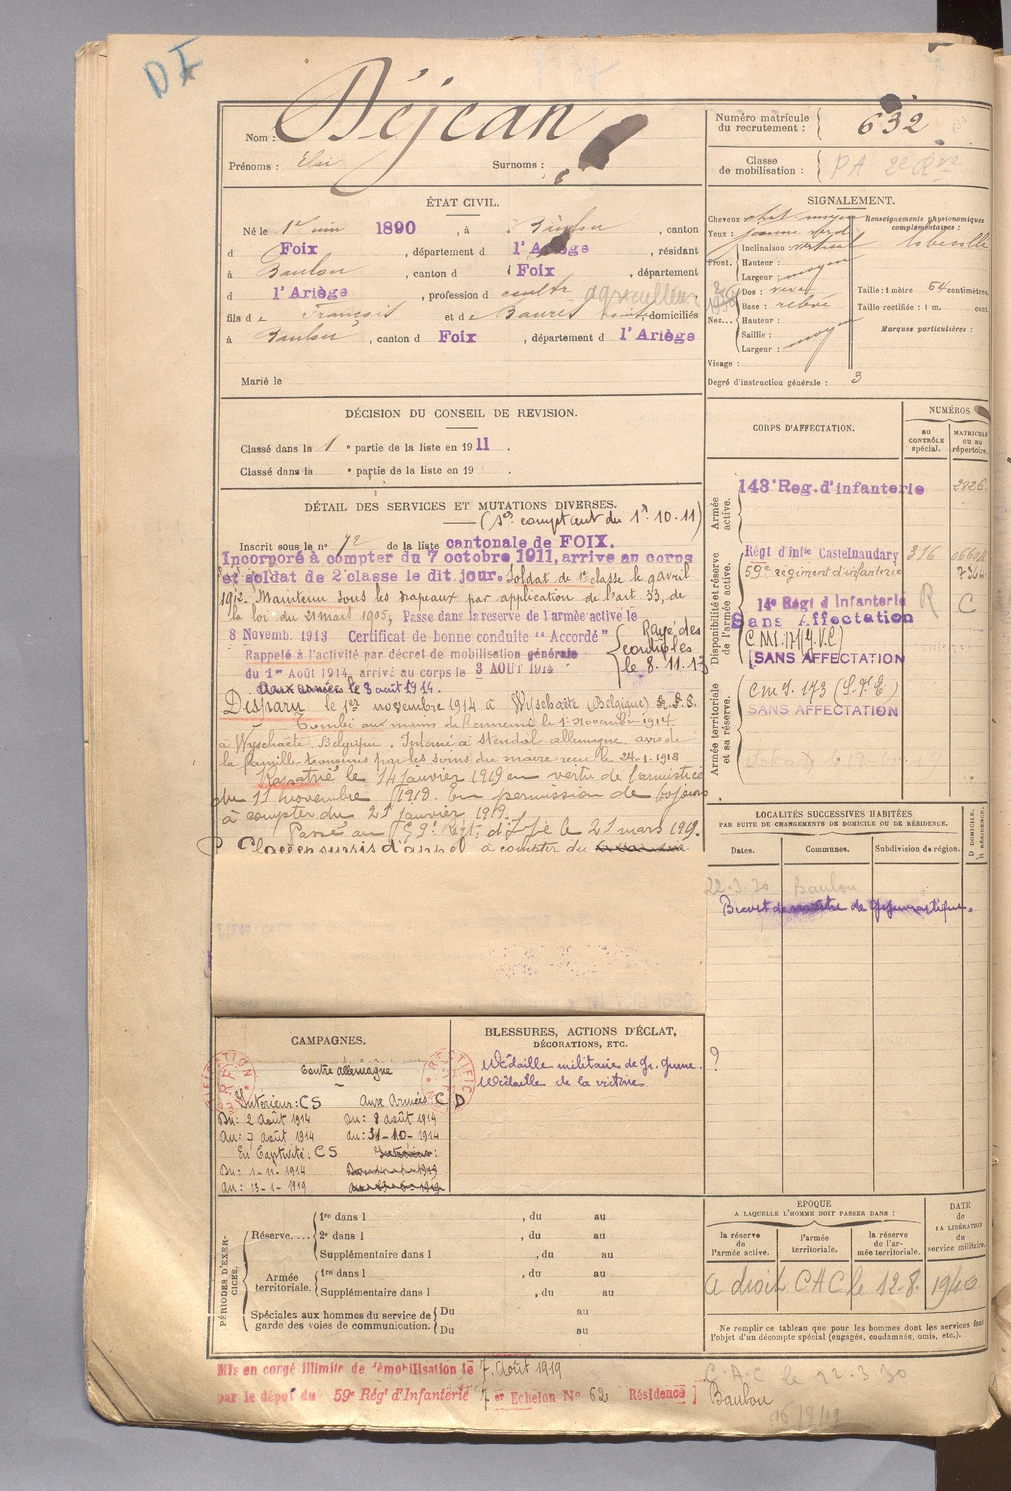 DI
Nom : Déjean
Prénoms : Eloi Surnoms :
Numéro matricule du recrutement : 632
Classe de mobilisation : PA 2e Rve
ÉTAT CIVIL.
Né le 1er juin 1890, à Baulou, canton
d Foix, département d l'Ariège, résidant
à Baulou, canton d Foix, département
d l'Ariège, profession d cultr agriculteur
fils de François et de Baures, domiciliés
à Baulou, canton d Foix, département d l'Ariège
Marié le
SIGNALEMENT.
Cheveux chat moyen
Yeux : jaune verd
Renseignements physionomiques complémentaires :
Front, Inclinaison vertical
Hauteur :
Largeur : moyen
Nez... Dos :
Base : relevé
Hauteur :
Saillie :
Largeur : moyen
Visage :
Taille : 1 mètre 54 centimètres.
Taille rectifiée : 1 m. cent.
Marques particulières :
Degré d'instruction générale : 3
DÉCISION DU CONSEIL DE REVISION.
Classé dans la 1e partie de la liste en 1911.
Classé dans la e partie de la liste en 19 .
DÉTAIL DES SERVICES ET MUTATIONS DIVERSES.
(Ses comptent du 1er 10.11)
Inscrit sous le n° 72 de la liste cantonale de FOIX.
Incorporé à compter du 7 octobre 1911, arrive au corps
et soldat de 2e classe le dit jour. Soldat de 1e classe le 9 avril
1912. Maintenu sous les drapeaux par application de l'art 33, de
la loi du 21 mars 1905, Passé dans la réserve de l'armée active le
8 Novemb. 1913 Certificat de bonne conduite "Accordé"
Rayé des contrôles le 8.11.13
Rappelé à l'activité par décret de mobilisation générale
du 1er Août 1914, arrivé au corps le 3 AOUT 1914
Aux armées le 8 août 1914.
Disparu le 1er novembre 1914 à Wyschaëte (Belgique)
Tombé aux mains de l'ennemi le 1er Novembre 1914
à Wyschaëte Belgique. Interné à Stendal allemagne. avis de
la famille transmis par les soins du maire reçu le 24-1-1918
Rapatrié le 14 janvier 1919 en vertu de l'armistice
du 11 novembre 1918. En permission de
à compter du 21 janvier 1919.
Passé au 59e Régt d'Ife le 21 mars 1919.
Placé en sursis d'appel à compter du
CORPS D'AFFECTATION.
NUMÉROS
au CONTRÔLE spécial.
MATRICULE ou au répertoire.
Armée active.
143e Reg. d'infanterie 2026
Disponibilité et réserve de l'armée active.
Régt d'infie Castelnaudary 316
59e régiment d'infanterie
14e Régt d'Infanterie R C
Sans Affectation
CMI. 171 (G.V.C)
SANS AFFECTATION
Armée territoriale et sa réserve.
CMI. 173
SANS AFFECTATION
LOCALITÉS SUCCESSIVES HABITÉES
PAR SUITE DE CHANGEMENTS DE DOMICILE OU DE RÉSIDENCE.
Dates. Communes. Subdivision de région. D DOMICILE. R RÉSIDENCE.
22.3.30 Baulou
Brevet de maître de gymnastique.
?
CAMPAGNES.
Contre allemagne
Intérieur : CS Aux Armées : CD
Du : 2 août 1914 Du : 8 août 1914
Au : 7 août 1914 au : 31-10-1914
En Captivité : CS Intérieur :
Du : 1-11-1914
Au : 13-1-1919
BLESSURES, ACTIONS D'ÉCLAT,
DÉCORATIONS, ETC.
Médaille militaire de gr. guerre.
Médaille de la victoire
PÉRIODES D'EXERCICES.
Réserve.... 1re dans l , du au
2e dans l , du au
Supplémentaire dans l , du au
Armée territoriale. 1re dans l , du au
Supplémentaire dans l , du au
Spéciales aux hommes du service de garde des voies de communication. Du au
Du au
EPOQUE
A LAQUELLE L'HOMME DOIT PASSER DANS :
la réserve de l'armée active.
l'armée territoriale.
la réserve de l'armée territoriale.
DATE de LA LIBÉRATION du service militaire.
a droit CAC le 12.8. 1940
Ne remplir ce tableau que pour les hommes dont les services font
l'objet d'un décompte spécial (engagés, condamnés, omis, etc.).
Mis en congé illimité de démobilisation le 7 Août 1919
par le dépôt du 59e Rég d'Infanterie 7er Echelon N° 62 Résidence Baulou
C.A.C le 22.3.30